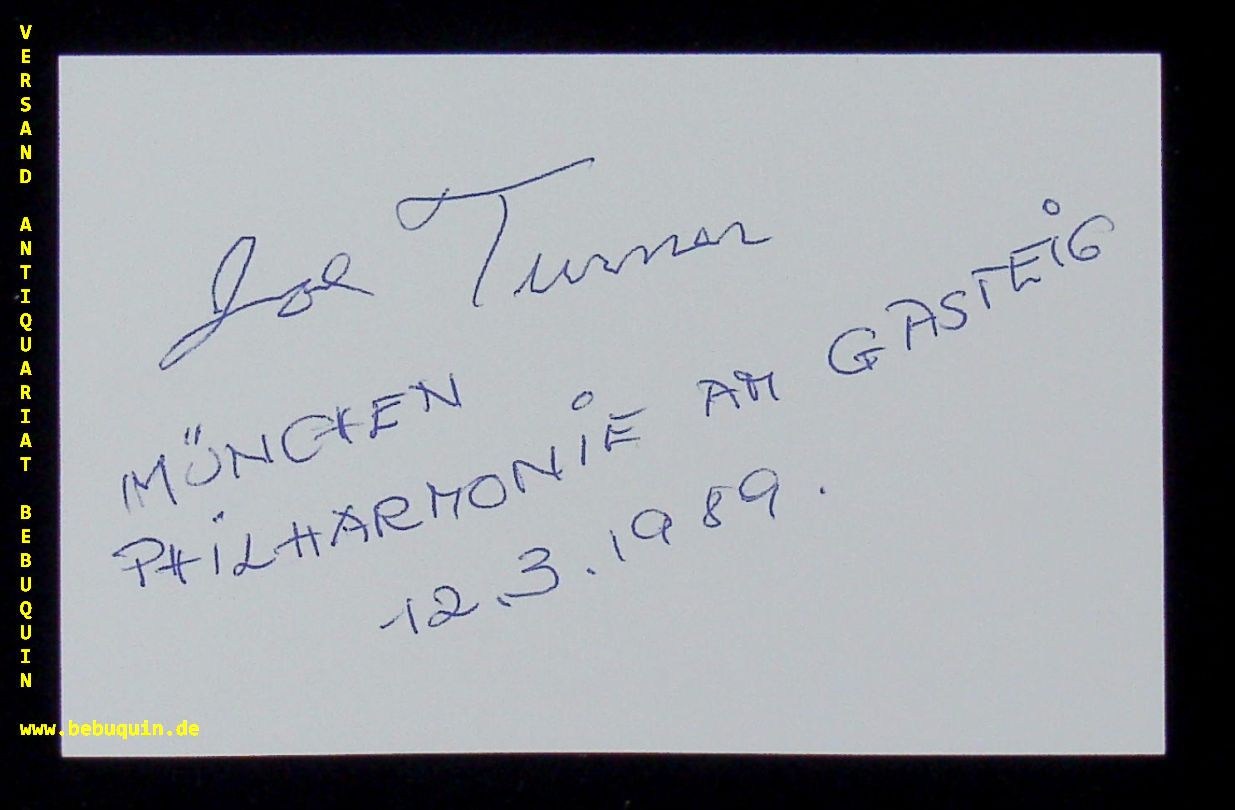 VERSAND ANTIQUARIAT BEBUQUIN
Joe Turner
MÜNCHEN
PHILHARMONIE AM GASTEIG
12.3.1989.
www.bebuquin.de